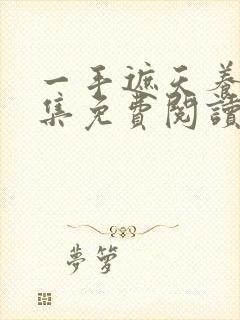 一手遮天养
集免費閱讀
夢箩